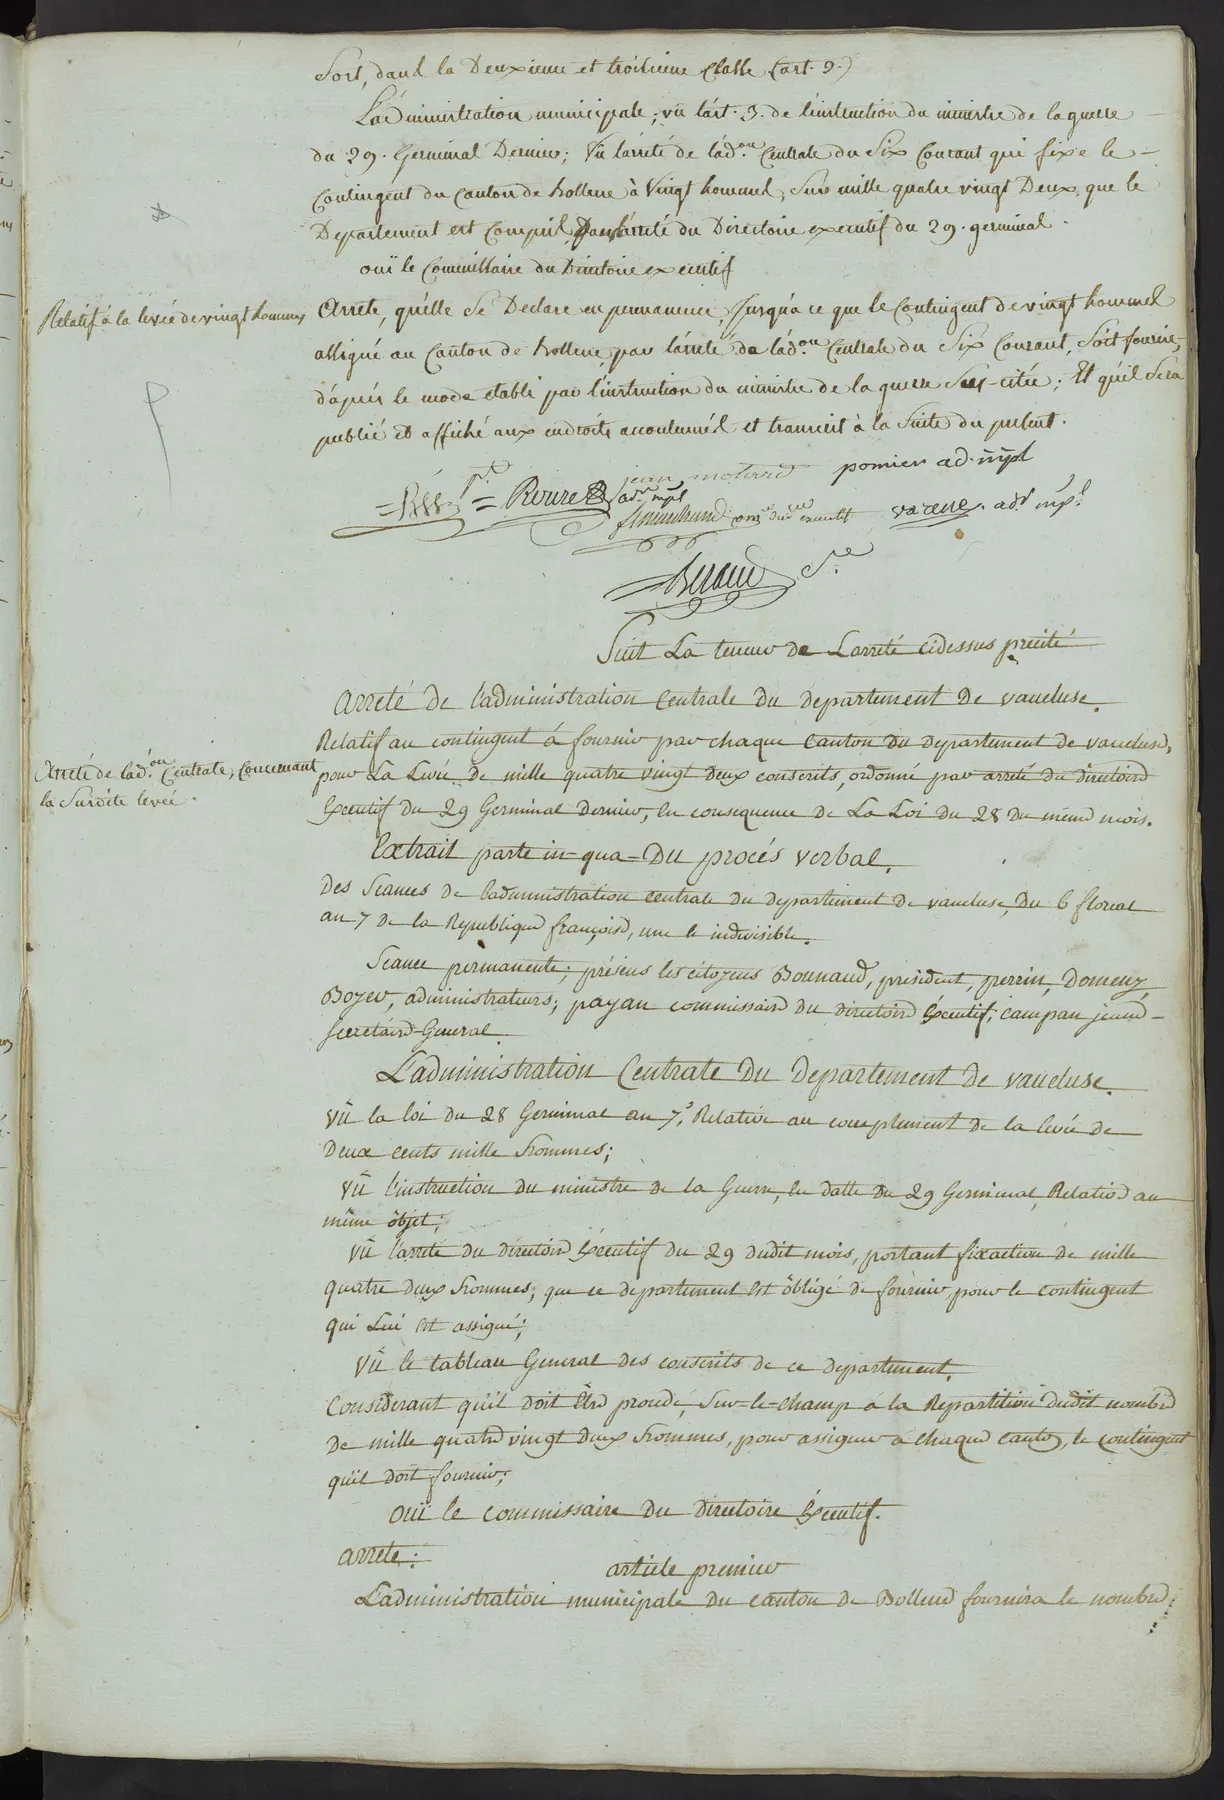 Sort, dans la Deuxieme et troisieme Classe (art. 9.)
L'administration municipale; vû l'art. 3. de l'instruction du ministre de la guerre
du 29. Germinal Dernier; Vû l'arrété de l'ad.on Centrale du Six Courant qui fixe le
Contingent du Canton de Bollene à Vingt hommes, Sur mille quatre vingt Deux, que le
Departement est Compris, Dans l'arrété du Directoire executif du 29. germinal.
oui le Commissaire du Directoire executif
Relatif à la levée de vingt hommes
Arrete, qu'elle Se Declare en permanence, Jusqu'a ce que le Contingent de vingt hommes
assigné au Canton de Bollene, par l'arrété de l'ad.on Centrale du Six Courant, Soit fourni,
d'aprés le mode etabli par l'instruction du ministre de la guerre Sus-citée; Et qu'il Sera
publié et affiché aux endroits accoutumés et transcrit à la Suite du présent.
jean molard pomier ad. mpl
Roure ad.r mpl
varene. adr mpl
Beraud Sre
Suit La teneur de L'arreté cidessus precité
Arreté de l'administration Centrale du departement de vaucluse.
Arreté de l'ad.on Centrale, Concernant
la Susdite levée.
Relatif au contingent á fournir par chaque Canton du departement de vaucluse,
pour La Levée de mille quatre vingt deux conscrits, ordonné par arreté du directoire
Executif du 29 Germinal dernier, en consequence de La Loi du 28 du même mois.
Extrait parte in-qua-Du procés verbal.
Des Séances de l'administration centrale du departement de vaucluse, du 6 floreal
an 7 de la Republique françoise, une & indivisible.
Seance permanente; présens les citoyens Bounaud, president, perrin, Domeny
Boyer, administrateurs; payan commissaire du directoire Executif; campan jeune-
Secretaire-General.
L'administration Centrale Du Departement de vaucluse.
Vû la loi du 28 Germinal an 7, Relative au complement de la levée de
Deux cents mille hommes;
Vû l'instruction du ministre de la Guerre, en datte du 29 Germinal, Relative au
même objet;
Vû l'arreté du directoire Executif du 29 dudit mois, portant fixaction de mille
quatre deux hommes, que ce departement est obligé de fournir, pour le contingent
qui Lui est assigné;
Vû le tableau General des conscrits de ce departement.
Considerant qu'il doit être procedé, Sur-le-champ a la Repartition dudit nombre
De mille quatre vingt deux hommes, pour assigner a chaque canton, le contingent
qu'il doit fournir;
Oui le commissaire du directoire Executif.
arrete:
article premier
L'administration municipale du canton de Bollene fournira le nombre